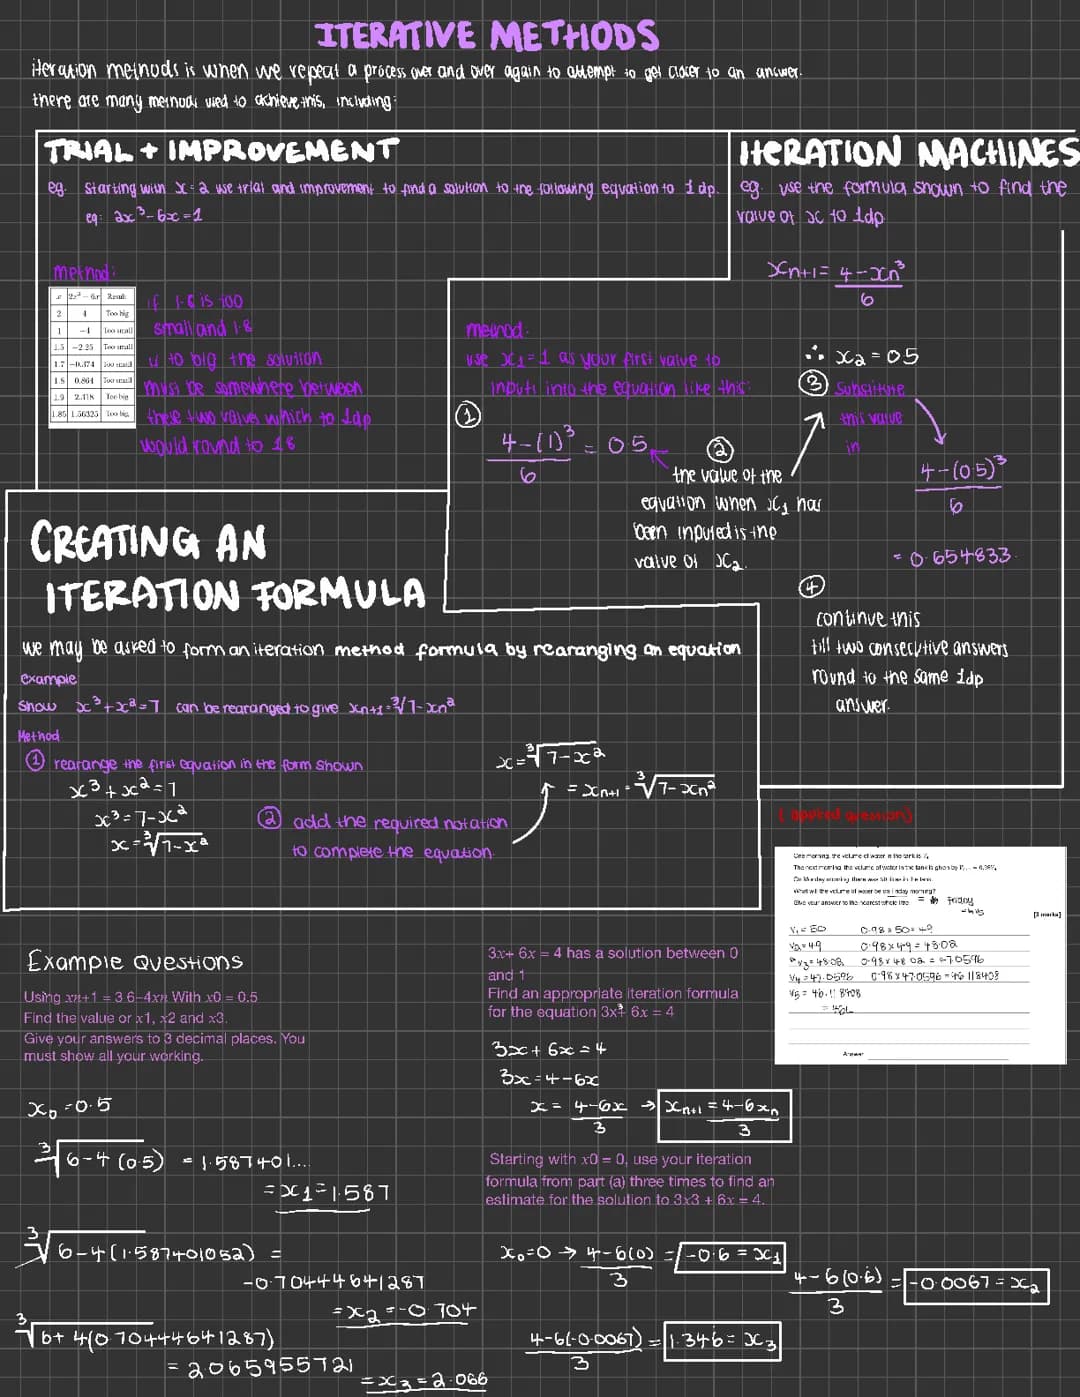 ITERATIVE METHODS
iteration methods is when we repeat a process over and over again to attempt to get closer to an answer.
there are many methods used to achieve this, including:
TRIAL + IMPROVEMENT
eg. Starting with x=2 use trial and improvement to find a solution to the following equation to 1 dp.
eq: 2x³-6x=1
method:
x 2x³ − 6x Result
2 4 Too big
1 −4 Too small
1.5 −2.25 Too small
1.7 −0.374 Too small
1.8 0.864 Too small
1.9 2.318 Too big
1.85 1.56325 Too big
if 1.6 is too
small and 1.8
is to big the solution
must be somewhere between
these two values which to 1dp
would round to 1.8
ITERATION MACHINES
eg. use the formula shown to find the
value of x to 1dp
xn+1 = 4-xn³
6
method:
use x1=1 as your first value to
input into the equation like this:
①
4-(1)³ = 0.5
6
②
the value of the
equation when x1 has
been inputed is the
value of x2.
∴ x2 = 0.5
③ Substitute
this value
in
4-(0.5)³
6
= 0.654833.
④
continue this
till two consecutive answers
round to the same 1dp
answer.
CREATING AN
ITERATION FORMULA
we may be asked to form an iteration method formula by rearanging an equation
example
Show x³+x²=7 can be rearranged to give xn+1=³√7-xn²
Method
① rearange the first equation in the form shown
x³+x²=7
x³=7-x²
x=³√7-x²
② add the required notation
to complete the equation.
x=³√7-x²
= xn+1 = ³√7-xn²
(applied question)
One morning, the volume of water in the tank is V₁
The next morning the volume of water in the tank is given by
On Monday morning there was 50 litres in the tank.
What will the volume of water be on Friday morning?
Give your answer to the nearest whole litre = Friday
= V5
[3 marks]
V1 = 50 0.98 × 50 = 49
V2 = 49 0.98 × 49 = 48.02
V3 = 48.02 0.98 × 48.02 = 47.0596
V4 = 47.0596 0.98 × 47.0596 = 46.118408
V5 = 46.118408
= 46L
Answer
Example Questions
Using xn+1 = 3 6–4xn With x0 = 0.5
Find the value or x1, x2 and x3.
Give your answers to 3 decimal places. You
must show all your working.
x0 = 0.5
³√6-4(0.5) = 1.587401....
= x1 = 1.587
³√6-4(1.587401052) =
-0.70444641287
= x2 = -0.704
³√6+4(0.70444641287)
= 2.065955721
= x3 = 2.066
3x+ 6x = 4 has a solution between 0
and 1
Find an appropriate iteration formula
for the equation 3x³+ 6x = 4
3x+6x=4
3x=4-6x
x = 4-6x → xn+1 = 4-6xn
3 3
Starting with x0 = 0, use your iteration
formula from part (a) three times to find an
estimate for the solution to 3x3 + 6x = 4.
x0=0 → 4-6(0) = -0.6 = x1
3
4-6(0.6) = -0.0067 = x2
3
4-6(-0.0067) = 1.346 = x3
3